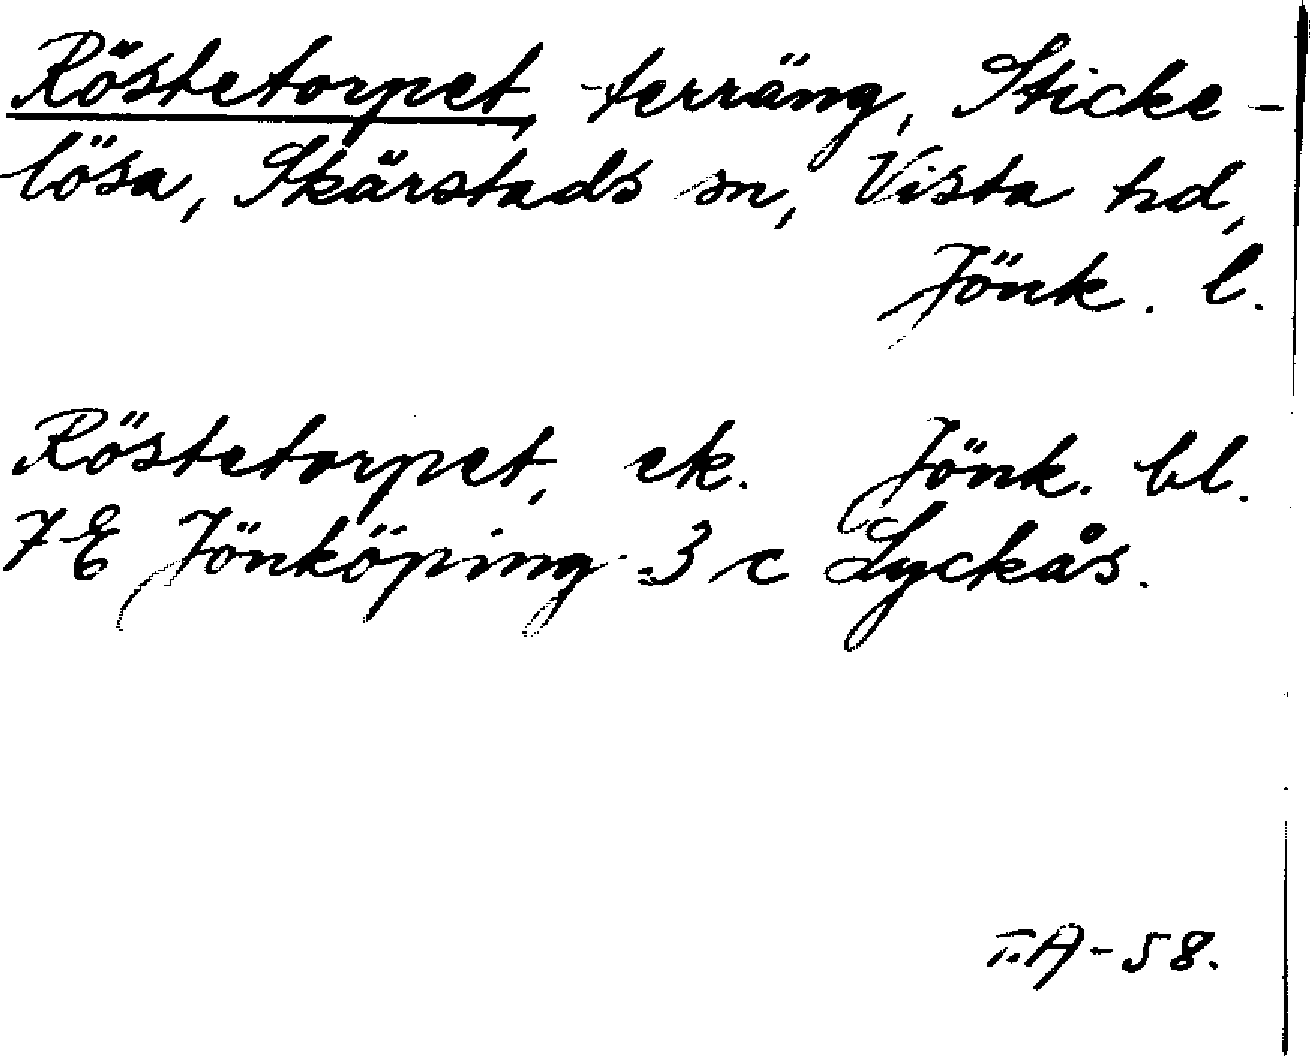 Röstetorpet, terräng, Sticke-
lösa, Skärstads sn, Vista hd,
Jönk. l.
Röstetorpet, ek. Jönk. bl.
7E Jönköping 3 c Lyckås.
T.A-58.